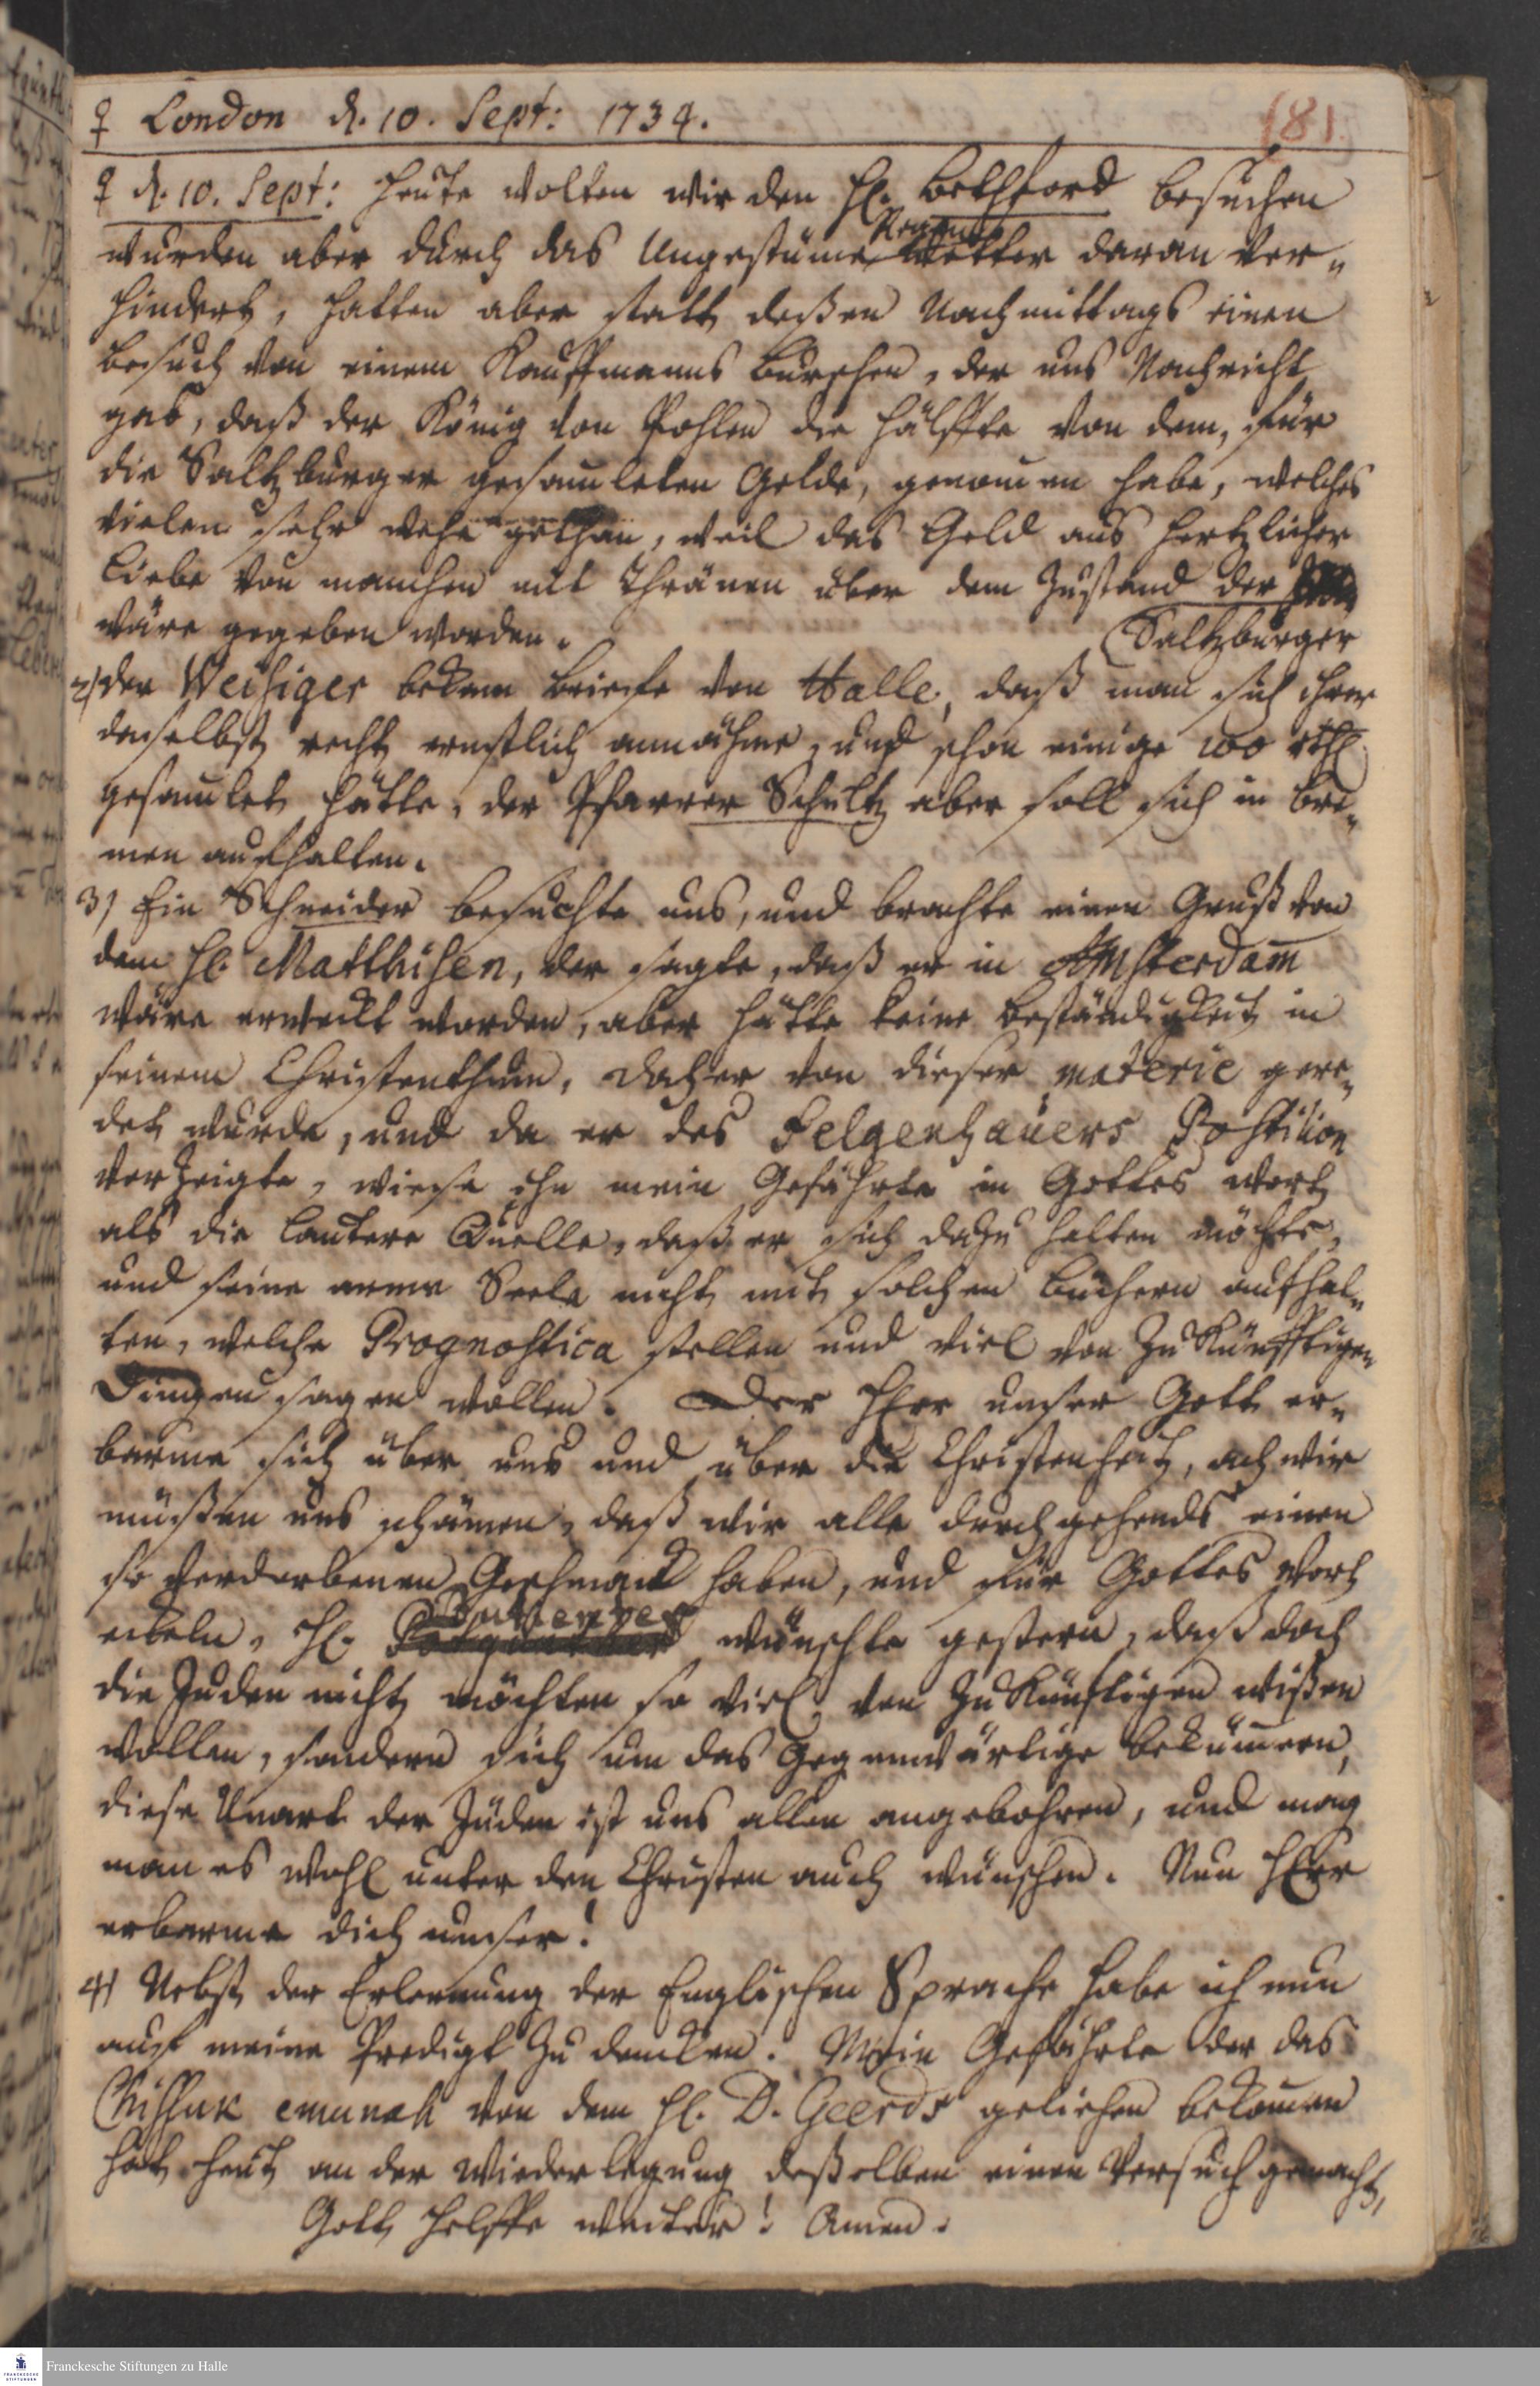 ♀ London d. 10. Sept: 1734.
181.
♀ d. 10. Sept: Heute wolten wir den H. Bethford besuchen
wurden aber durch das Ungestüme Regen Wetter daran ver-
hindert, hatten aber statt deßen Nachmittags einen
Besuch von einem Kauffmanns Burschen, der uns Nachricht
gab, daß der König von Pohlen die Hälffte von dem, für
die Saltzburger gesamleten Gelde, genommen habe, welches
vielen sehr wehe gethan, weil das Geld aus hertzlicher
Liebe von manchen mit Thränen über dem Zustand der
wäre gegeben worden. (Saltzburger
2) der Weisiger bekam Briefe von Halle, daß man sich ihrer
daselbst recht ernstlich annähme, und schon einige 100 rthl
gesamlet hätte, der Pfarrer Schultz aber soll sich in Bre-
men aufhalten.
3) Ein Schneider besuchte uns, und brachte einen Gruß von
dem H. Matthisen, der sagte, daß er in Amsterdam
wäre erweckt worden, aber hätte keine Beständigkeit in
seinem Christenthum, daher von dieser materie gere-
det wurde, und da er des Felgenhauers Postilion
vorzeigte, wiese ihn mein Gefährte in Gottes Wort
als die lautere Quelle, daß er sich dazu halten möchte,
und seine arme Seele nicht mit solchen Büchern aufhal-
ten, welche Prognostica stellen und viel von Zukünfftigen
Dingen sagen wollen. Der HErr unser Gott er-
barme sich über uns und über die Christenheit, ach wir
müßen uns schämen, daß wir alle durchgehends einen
so verdorbenen Geschmack haben, und für Gottes Wort
eckeln. H. wünschte gestern, daß doch
die Juden nicht möchten so viel von Zukünftigen wißen
wollen, sondern sich um das Gegenwärtige bekümmern,
diese Unart der Jüden ist uns allen angebohren, und mag
man es wohl unter den Christen auch wünschen. Nun HErr
erbarme dich unser!
4) Nebst der Erlernung der Englischen Sprache habe ich nun
auf meine Predigt zu dencken. Mein Gefährte der das
Chissuk emunah von dem H. D. Geerds geliehen bekommen
hat, heut an der Wiederlegung deßelben einen Versuch gemacht,
Gott helffe weiter! Amen.
Franckesche Stiftungen zu Halle